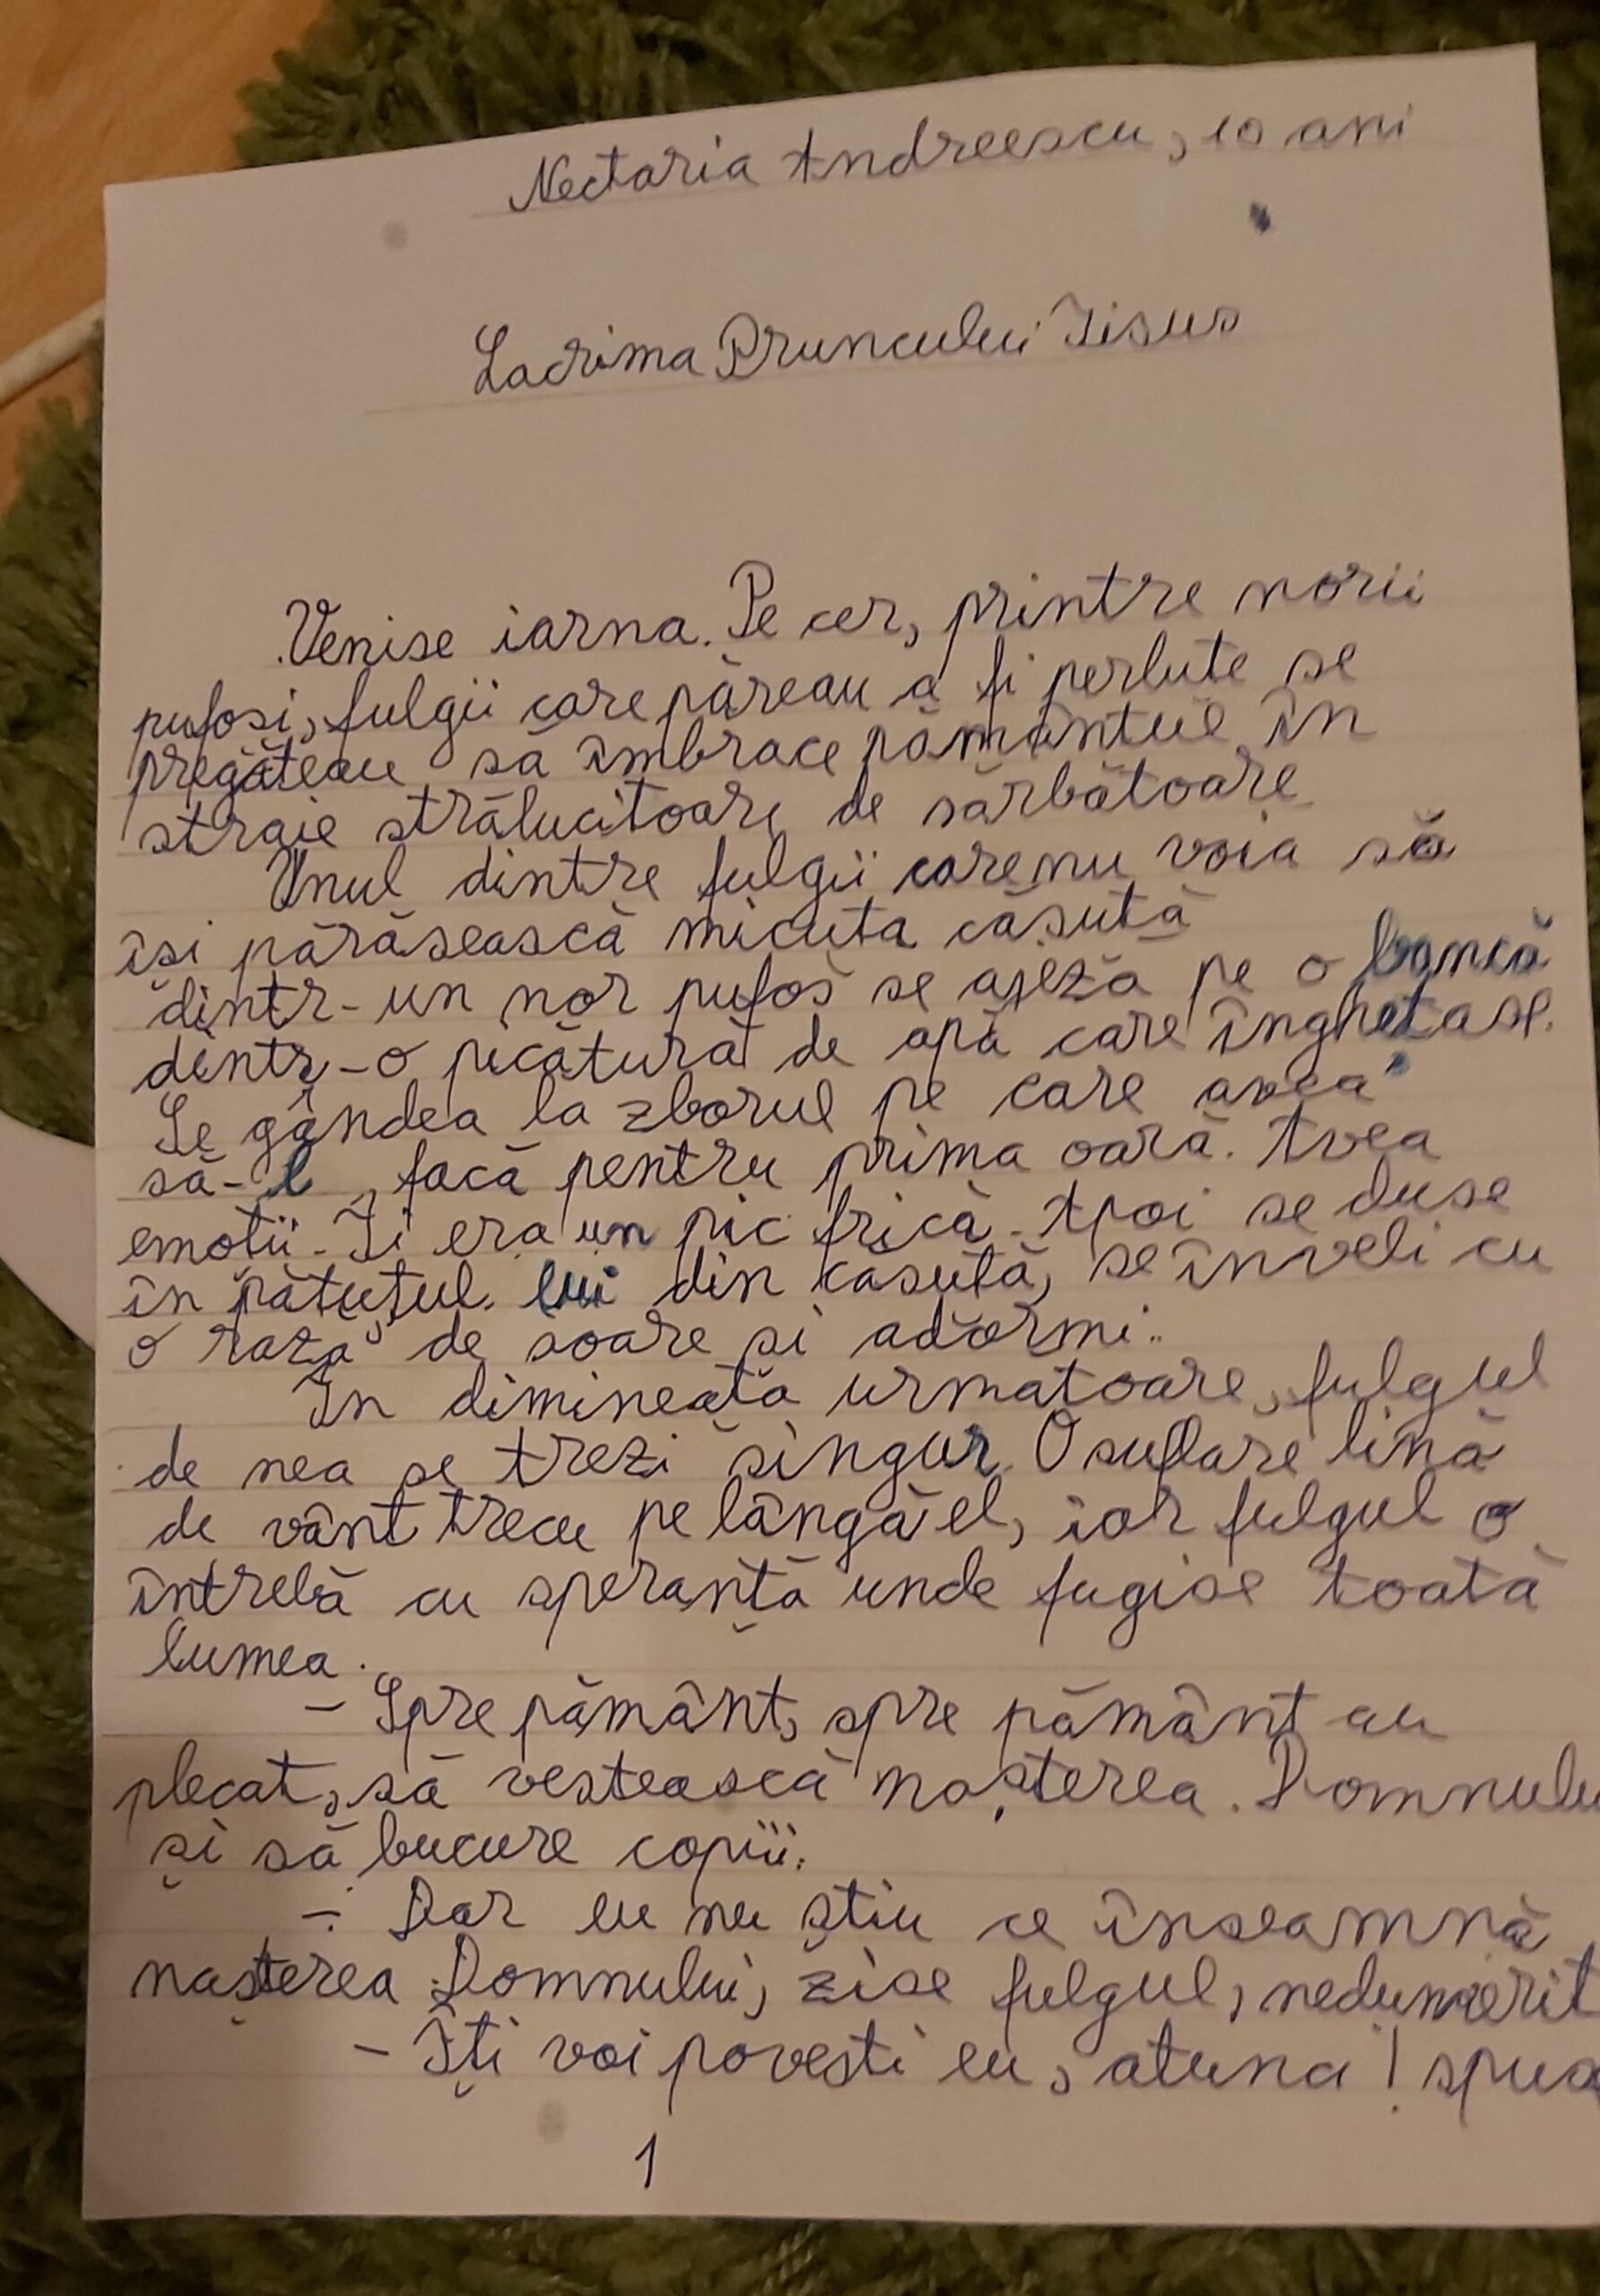 Nectaria Andreescu, 10 ani
Lacrima Pruncului Iisus
Venise iarna. Pe cer, printre norii
pufosi, fulgii care păreau a fi perlute se
pregăteau să îmbrace pământul în
straie strălucitoare de sărbătoare
Unul dintre fulgii care nu voia să
îsi părăsească micuta căsută
dintr-un nor pufos se aseză pe o bancă
dintr-o picătură de apă care înghetase.
Se gândea la zborul pe care avea
să-l facă pentru prima oară. Avea
emotii. Ii era un pic frică. Apoi se duse
în pătuțul lui din căsută, se înveli cu
o rază de soare si adormi.
In dimineata urmatoare, fulgul
de nea se trezi singur. O suflare lină
de vânt trecu pe lângă el, iar fulgul o
întrebă cu speranță unde fugise toată
lumea.
- Spre pământ, spre pământ au
plecat, să vestească nașterea Domnulu
și să bucure copiii.
- Dar eu nu știu ce înseamnă
nașterea Domnului, zise fulgul, nedumerit
- Îți voi povesti eu, atunci! spus
1